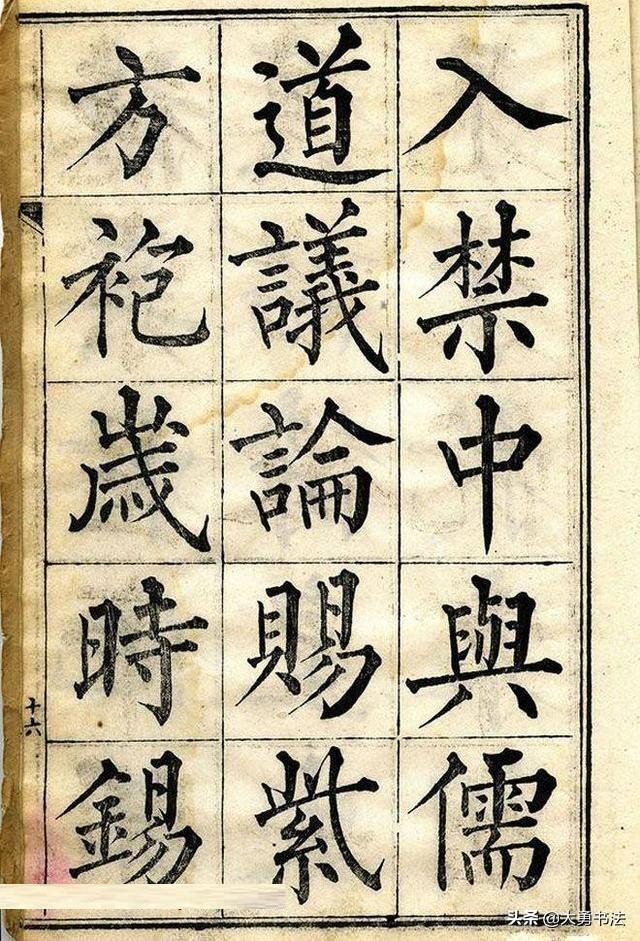 入禁中與儒
道議論賜紫
方袍歲時錫
十六
头条 @大勇书法